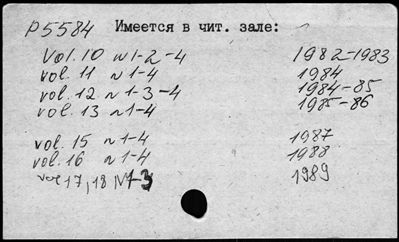 P5584 Имеется в чит. зале:
Vol. 10 N 1-2-4 1982-1983
vol. 11 N 1-4 1984
vol. 12 N 1-3-4 1984-85
vol. 13 N 1-4 1985-86
vol. 15 N 1-4 1987
vol. 16 N 1-4 1988
vol 17, 18 N 1-3 1989